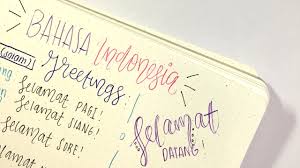 BAHASA Indonesia
(salam) Greetings
Selamat PAGI!
Selamat SIANG!
Selamat SORE!
Selamat
DATANG!